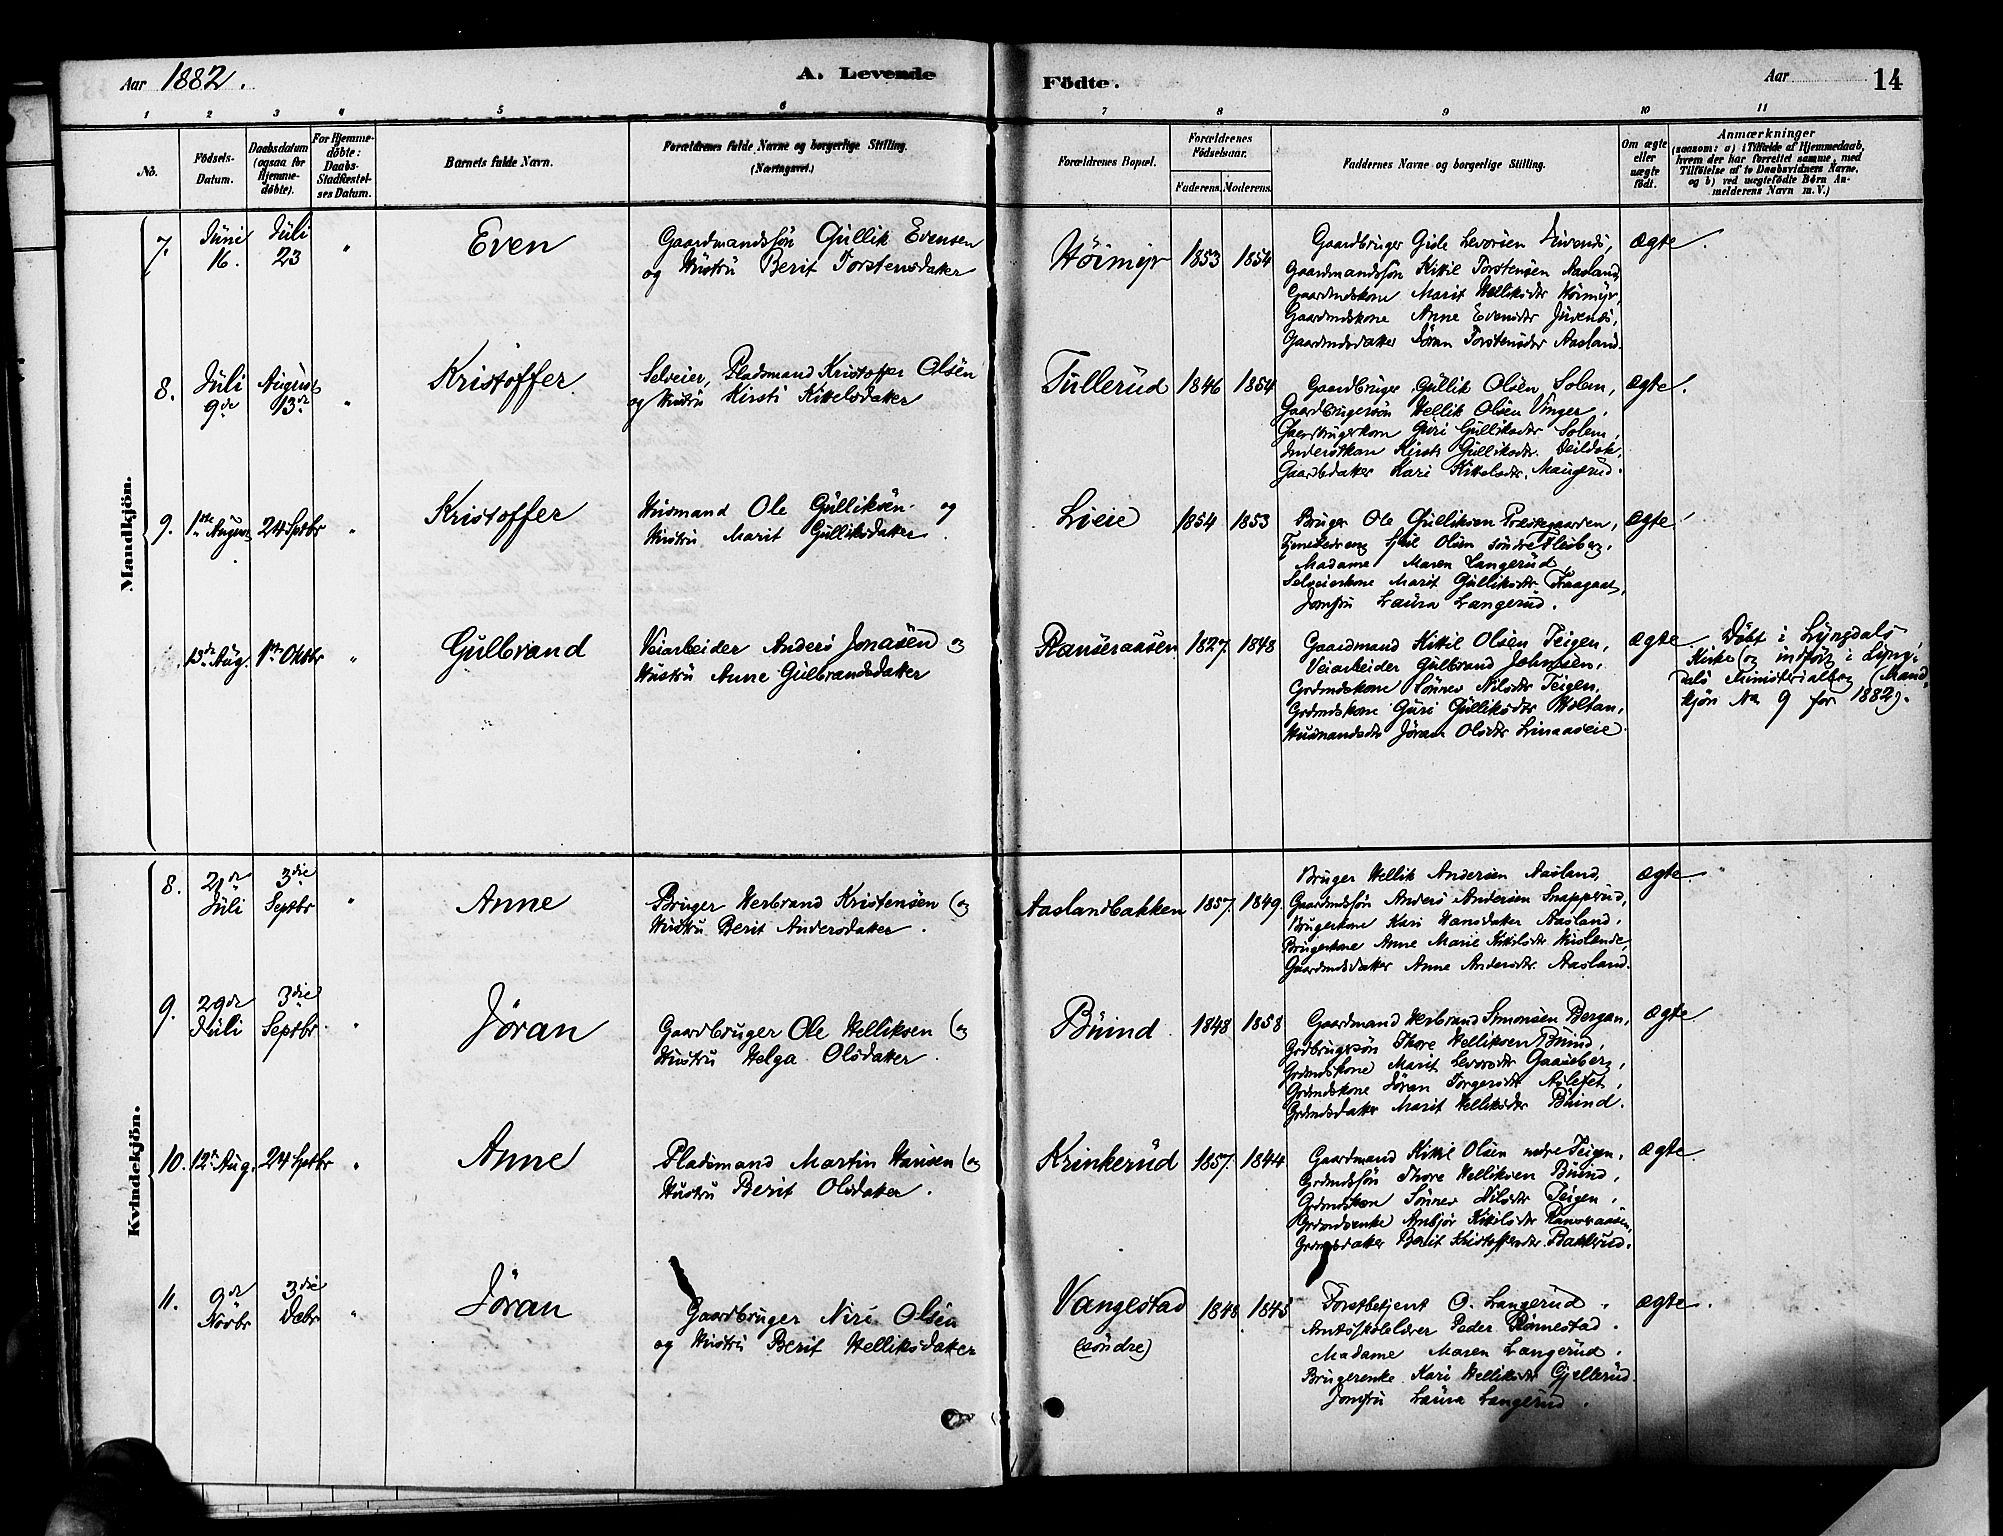 Aar 1882. A. Levende Födte. Aar 14
1 2 3 4 5 6 7 8 9 10 11
No.
Födsels-
Datum.
Daabsdatum
(ogsaa for
Hjemme-
döbte).
For Hjemme-
döbte:
Daabs-
Stadfæstel-
ses Datum.
Barnets fulde Navn.
Forældrenes fulde Navne og borgerlige Stilling.
(Næringsvei.)
Forældrenes Bopæl.
Forældrenes
Födselsaar.
Faderens. Moderens.
Faddernes Navne og borgerlige Stilling.
Om ægte
eller
uægte
födt.
Anmærkninger
(saasom: a) i Tilfælde af Hjemmedaab,
hvem der har forrettet samme, med
Tilföielse af to Daabsvidners Navne,
og b) ved uægtefödte Börn An-
melderens Navn m. V.)
Mandkjön.
7. Juni 16. Juli 23 " Even
Gaardmandssön Gullik Evensen
og Hustru Berit Torstensdatter
Höimyr 1853 1854
Gaardbruger Gisle Levorsen Juvenes,
Gaardmandssön Kittil Torstensen Aasland,
Gaardmdskone Marit Helliksdtr Höimyr,
Gaardmdskone Anne Evensdtr Juvenes,
Gaardmdsdatter Jöran Torstensdtr Aasland.
ægte.
8. Juli 9de August 13de " Kristoffer
Selveier, Pladsmand Kristoffer Olsen
og Hustru Kirsti Kittelsdatter
Tullerud 1846 1854
Gaardbruger Gullik Olsen Solem,
Gaardbrugersön Hellik Olsen Vinger,
Gaardbrugerkone Guri Gulliksdtr Solem,
Kirsti Gulliksdtr.
Gaardbdatter Kari Kittelsdtr. Maugerud.
ægte.
9. 1ste August 24 Septbr " Kristoffer
Husmand Ole Gulliksen og
Hustru Marit Gulliksdatter.
Lieie 1854 1853
Bruger Ole Gulliksen Præstegaarden,
Tjenestedreng Olsen söndre Flesberg,
Madame Maren Langerud,
Selveierkone Marit Gulliksdtr
Jomfru Laura Langerud.
ægte
13de Aug. 1ste Oktbr " Gulbrand
Veiarbeider Anders Jonasen og
Hustru Anne Gulbrandsdatter
Ranseraasen 1827 1848
Gaardmand Kittil Olsen Teigen,
Veiarbeider Gulbrand Johnsen,
Grdmdskone Sönnev Nilsdtr Teigen,
Grdmdskone Guri Gulliksdtr Holtan,
Husmandsdtr Jöran Olsdtr Limaaseie.
ægte
Döbt i Lyngdals
Kirke og indfört i Lyng-
dals Ministerialbog (Mand-
kjön No 9 for 1882).
Kvindekjön.
8. 21de Juli 3die Septbr " Anne
Bruger Herbrand Kristensen og
Hustru Berit Andersdatter.
Aaslandbakken 1857 1849
Bruger Hellik Andersen Aasland,
Gaardmdssön Anders Andersen Snapperud,
Brugerkone Kari Hansdatter Aasland,
Brugerkone Anne Marie Kittilsdtr
Gaardmdsdatter Anne Andersdtr. Aasland.
ægte.
9. 29de Juli 3die Septbr " Jöran
Gaardbruger Ole Helliksen og
Hustru Helga Olsdatter.
Buind 1848 1858
Gaardmand Herbrand Simonsen Bergan,
Grdbrugersön Thore Helliksen Buind,
Grdmdskone Marit Levorsdtr Gaaseberg,
Grdmdskone Jöran Torgersdtr Aslefet,
Grdmdsdatter Marit Helliksdtr Buind.
ægte
10. 12te Aug. 24 Septbr " Anne
Pladsmand Martin Hansen og
Hustru Berit Olsdatter.
Krinkerud 1857 1844
Gaardmand Kittil Olsen nedre Teigen,
Grdmdssön Thore Helliksen Buind,
Grdmdskone Sönnev Nilsdtr Teigen,
Grdmdsenke Ambjör Kittilsdtr Ranseraasen,
Grdmdsdatter Berit Kristoffersdtr. Bakkerud.
ægte
11. 9de Novbr 3die Decbr " Jöran
Gaardbruger Niri Olsen
og Hustru Berit Helliksdatter
Vangestad
(söndre)
1848 1845
Forstbetjent O. Langerud.
Amtsskolelærer Peder Rönnestad.
Madame Maren Langerud.
Brugerenke Kari Helliksdtr Gjellerud.
Jomfru Laura Langerud.
ægte.